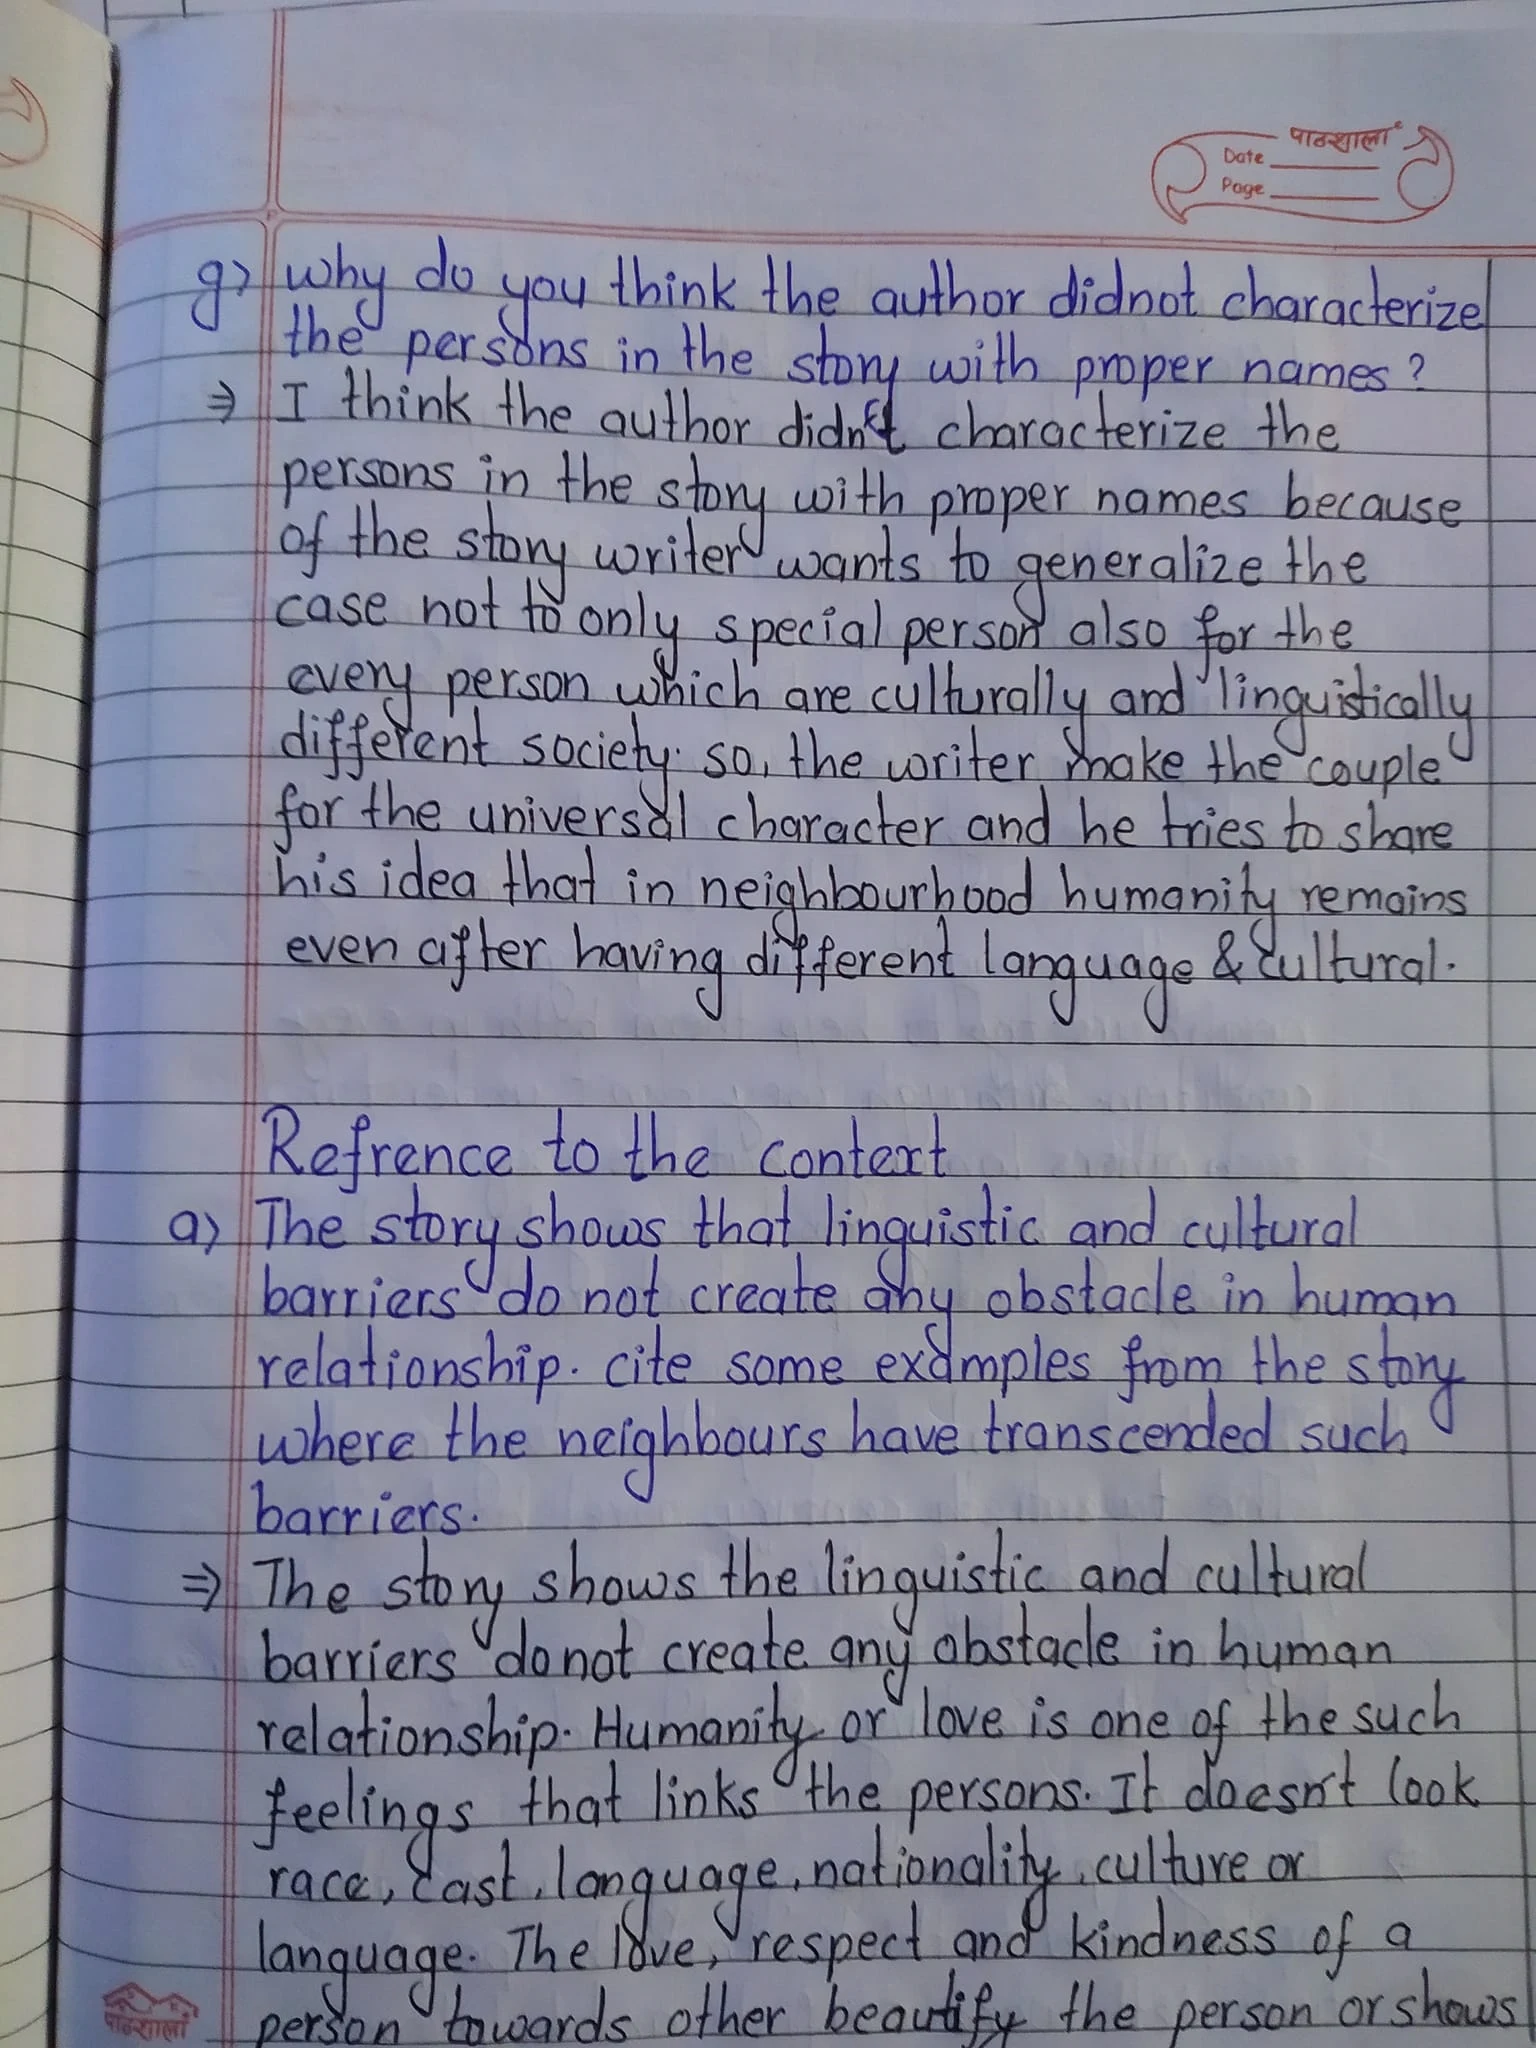 पाठशाला
Date
Page
g) why do you think the author didnot characterize
the persons in the story with proper names?
⇒ I think the author didn't characterize the
persons in the story with proper names because
of the story writer wants to generalize the
case not to only special person also for the
every person which are culturally and linguistically
different society. so, the writer make the couple
for the universal character and he tries to share
his idea that in neighbourhood humanity remains
even after having different language & cultural.
Refrence to the context
a) The story shows that linguistic and cultural
barriers do not create any obstacle in human
relationship. cite some examples from the story
where the neighbours have transcended such
barriers.
⇒ The story shows the linguistic and cultural
barriers donot create any obstacle in human
relationship. Humanity or love is one of the such
feelings that links the persons. It doesn't look
race, cast, language, nationality, culture or
language. The love, respect and kindness of a
person towards other beautify the person or shows
पाठशाला